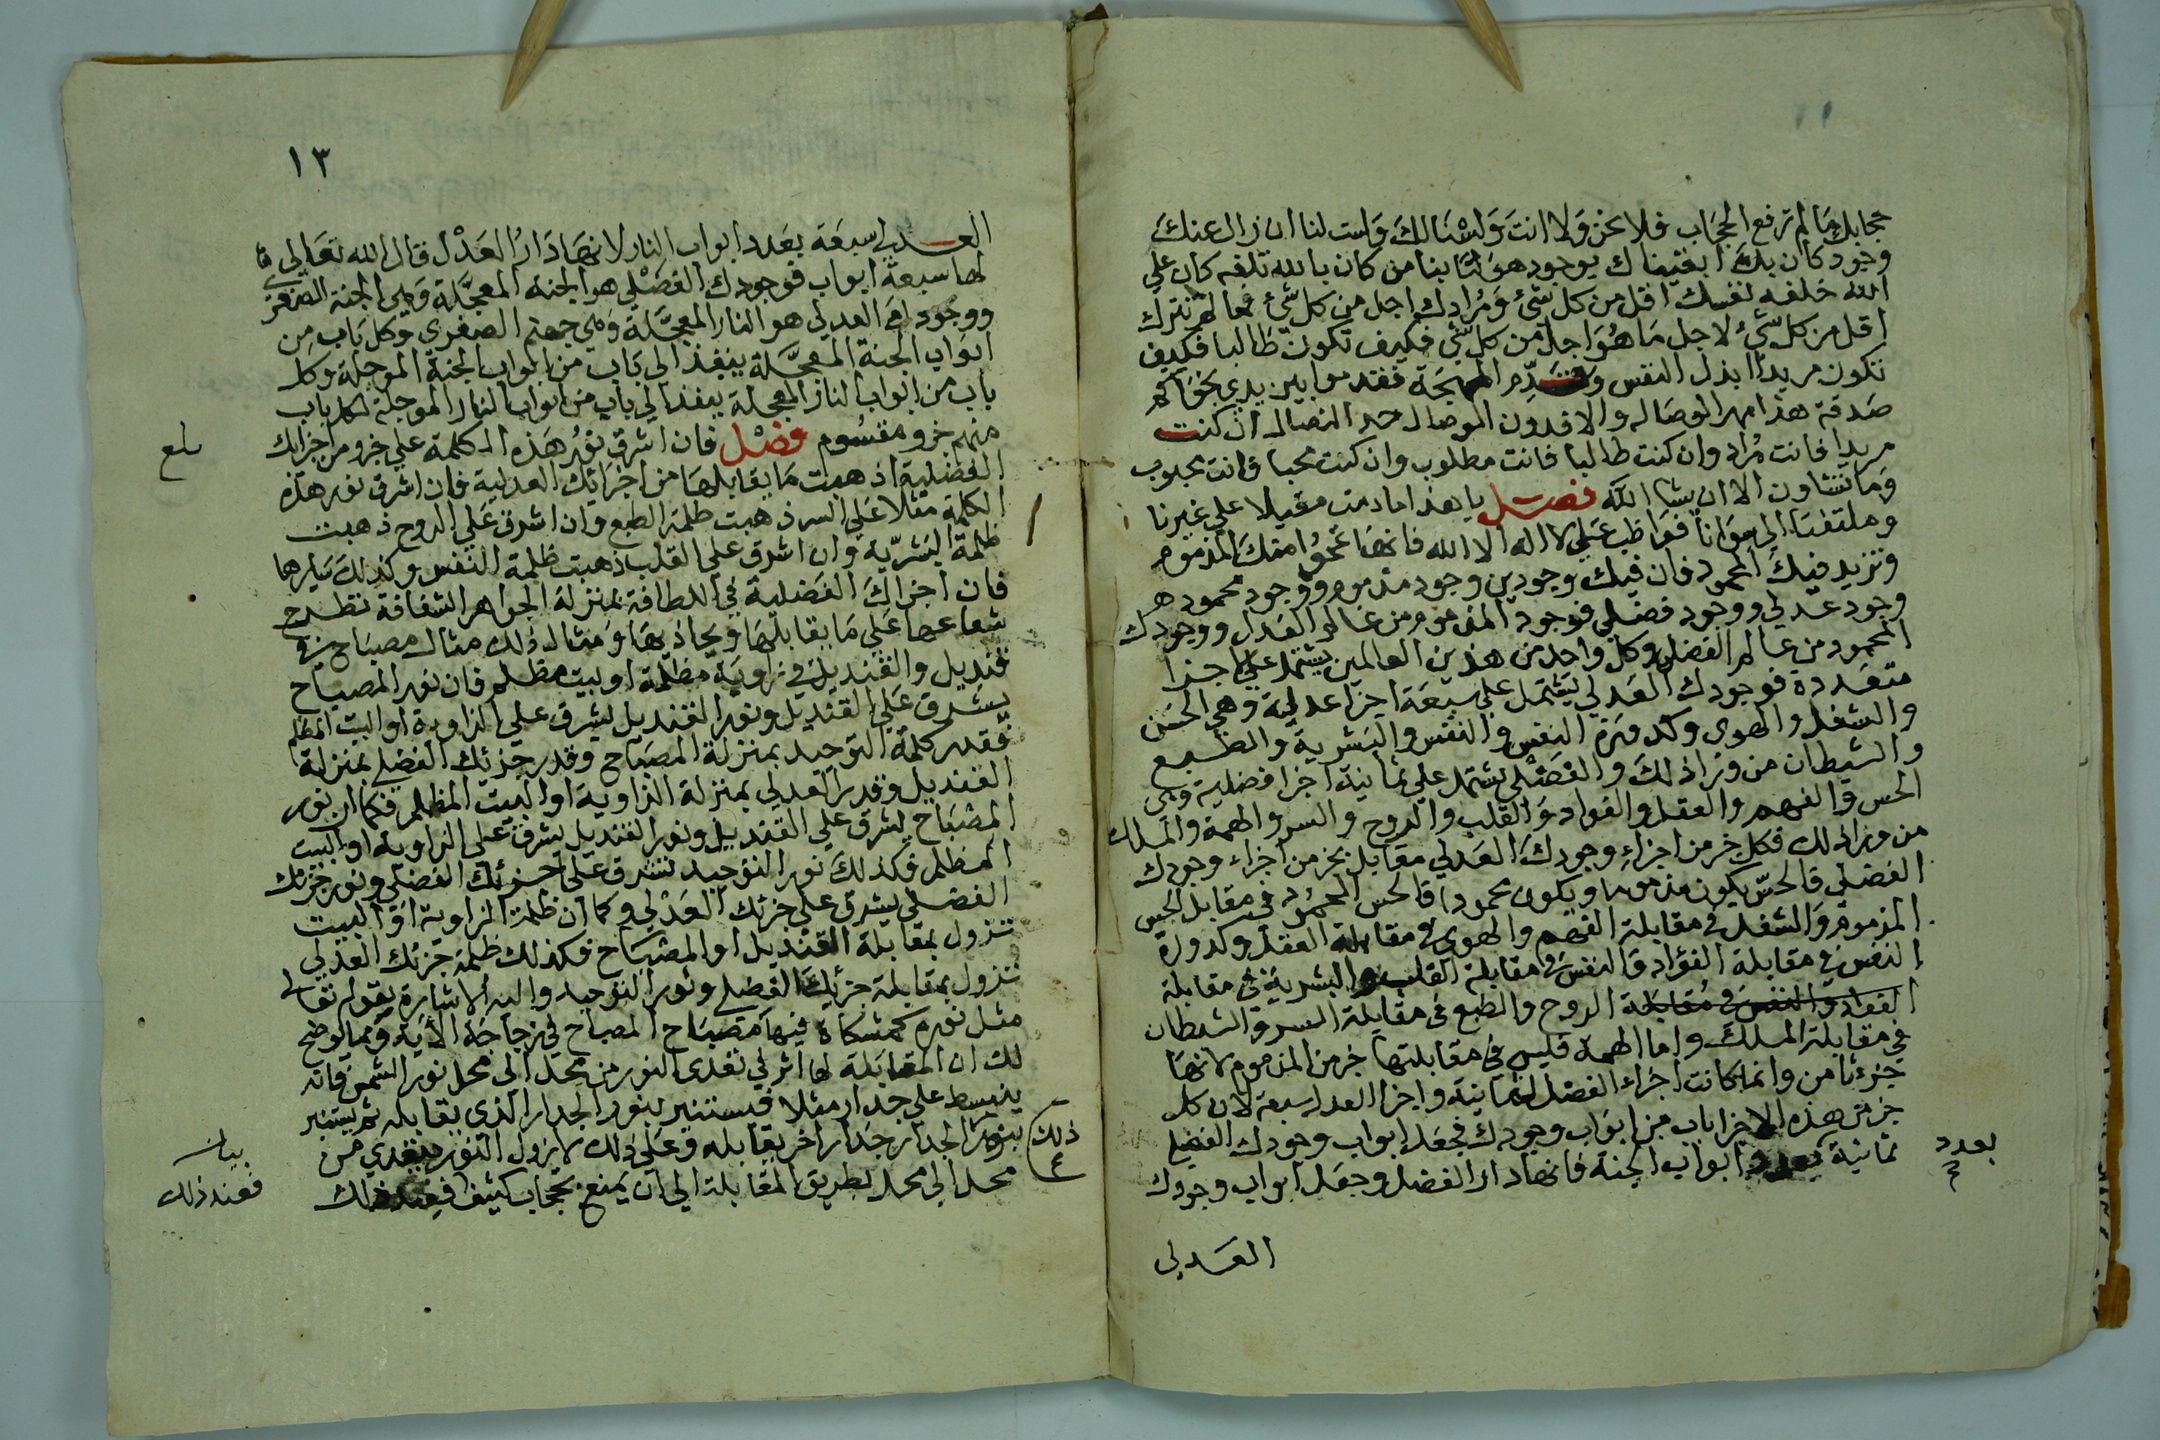 حجابك ما لم ترفع الحجاب فلا نحن ولا انت ولسنا لك ولست لنا ان زال عنك
وجود كان بك ابقيناك بوجود هو لنا بنا من كان بالله تلفه كان علي
الله خلفه نفسك اقل من كل شئ ومرادك اجل من كل شئ فما لم تترك
اقل من كل شئ لاجل ما هو اجل من كل شئ فكيف تكون طالبا فكيف
تكون مريدا ابذل النفس وقدم المهجة فقدموا بين يدي نجواكم
صدقة هذا مهر الوصال والا فدون الوصال حد النصال ان كنت
مريدا فانت مراد وان كنت طالبا فانت مطلوب وان كنت محبا فانت محبوب
وما تشاون الا ان يشا الله فصل يا هذا ما دمت مقبلا علي غيرنا
وملتفتا الي سوانا فواظب علي لا اله الا الله فانها تمحوا منك المذموم
وتزيد فيك المحمود فان فيك وجودين وجود مذموم ووجود محمود هـ
وجود عدلي ووجود فضلي فوجودك المذموم من عالم العدل ووجودك
المحمود من عالم الفضل وكل واحد من هذين العالمين يشتمل علي اجزا
متعددة فوجودك العدلي يشتمل علي سبعة اجزا عدلية وهي الحس
والشغل والهوى وكدورة النفس والنفس والبشرية والطبع
والشيطان من وراذلك والفضلي يشتمل علي ثمانية اجزا فضلية وهي
الحس والفهم والعقل والفواد والقلب والروح والسر والهمة والملك
من وراذلك فكل جز من اجزاء وجودك العدلي مقابل بجز من اجزاء وجودك
الفضلي فالحس يكون مذموما ويكون محمودا فالحس المحمود في مقابل الحس
المذموم والشغل في مقابلة الفهم والهوى في مقابلة العقل وكدورة
النفس في مقابلة الفؤاد والنفس في مقابلة القلب والبشرية في مقابلة
الفواد والنفس في مقابلة الروح والطبع في مقابلة السر والشيطان
في مقابلة الملك واما الهمة فليس في مقابلتها جز من المذموم لانها
جزء ثامن وانما كانت اجزاء الفضل ثمانية واجزا العدل سبعة لان كل
جز من هذه الاجزا باب من ابواب وجودك فجعل ابواب وجودك الفضلي
ثمانية بعدد ابواب الجنة فانها دار الفضل وجعل ابواب وجودك
بعدد
العدلي
١٣
العدلي سبعة بعدد ابواب النار لانها دار العدل قال الله تعالي
لها سبعة ابواب فوجودك الفضلي هو الجنة المعجلة وهي الجنة الصغرى
ووجودك العدلي هو النار المعجلة وهي جهنم الصغرى وكل باب من
ابواب الجنة المعجلة ينفذ الي باب من ابواب الجنة الموجلة وكل
باب من ابواب النار المعجلة ينفذ الي باب من ابواب النار الموجلة لكل باب
منهم جزو مقسوم فصل فان اشرق نور هذه الكلمة علي جزو من اجزائك
الفضلية اذهبت ما يقابلها من اجزائك العدلية فان اشرق نور هذه
الكلمة مثلا علي السر ذهبت ظلمة الطبع وان اشرق علي الروح ذهبت
ظلمة البشرية وان اشرق علي القلب ذهبت ظلمة النفس وكذلك سايرها
فان اجزاك الفضلية في اللطافة بمنزلة الجواهر الشفافة تطرح
شعاعها علي ما يقابلها ويحاذيها ومثال ذلك مثال مصباح في
قنديل والقنديل في زاوية مظلمة او بيت مظلم فان نور المصباح
يشرق علي القنديل ونور القنديل يشرق علي الزاوية او البيت المظلم
فقدر كلمة التوحيد بمنزلة المصباح وقدر جزئك الفضلي بمنزلة
القنديل وقدر العدلي بمنزلة الزاوية او البيت المظلم فكما ان نور
المصباح يشرق علي القنديل ونور القنديل يشرق علي الزاوية او البيت
المظلم فكذلك نور التوحيد تشرق علي جزئك الفضلي ونور جزئك
الفضلي يشرق علي جزئك العدلي وكما ان ظلمة الزاوية او البيت
تزول بمقابلة القنديل او المصباح فكذلك ظلمة جزئك العدلي
تزول بمقابلة جزئك الفضلي ونور التوحيد واليه الاشارة بقوله تعالي
مثل نوره كمشكاة فيها مصباح المصباح في زجاجة الاية ومما يوضح
لك ان المقابلة لها اثر في تعدى النور من محل الي محل نور الشمس فانه
ينبسط علي جدار مثلا فيستنير بنور الجدار الذي يقابله ثم يستنير
بنور الجدار جدار اخر يقابله وعلي ذلك لا يزول النور يتعدي من
محل الي محل بطريق المقابلة الي ان يمنع بحجاب كثيف فعند ذلك
بلغ
ذلك
بيان
فعند ذلك